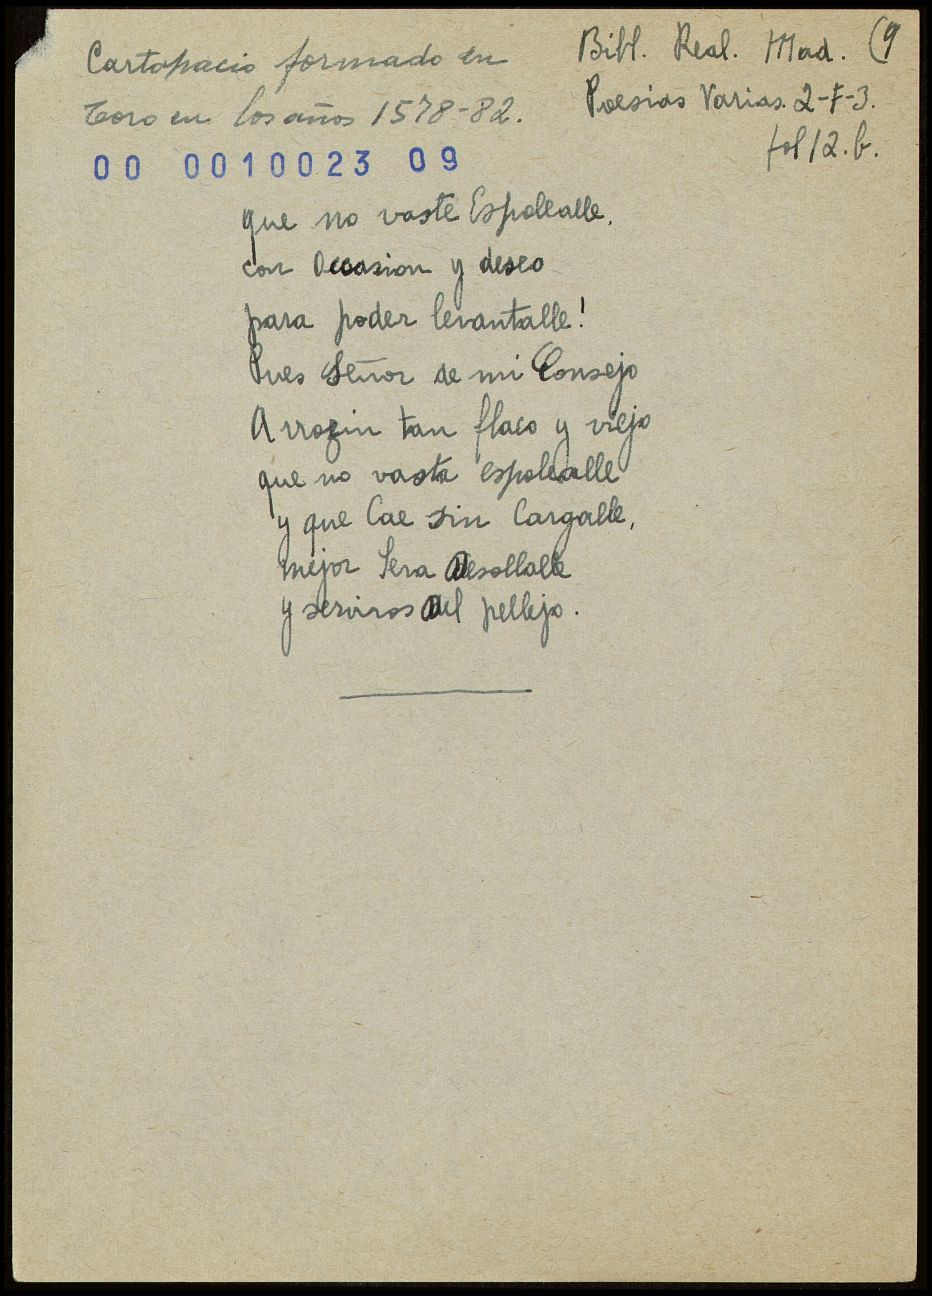 Cartapacio formado en
Toro en los años 1578-82.
Bibl. Real. Mad. (9
Poesias Varias. 2-F-3.
fol 12. b.
00 0010023 09
que no vaste Espolealle,
con Occasion y deseo
para poder levantalle!
Pues Señor de mi Consejo
A rrozin tan flaco y viejo
que no vasta espolealle
y que Cae sin Cargalle,
mejor Sera Desollalle
y serviros Del pellejo.